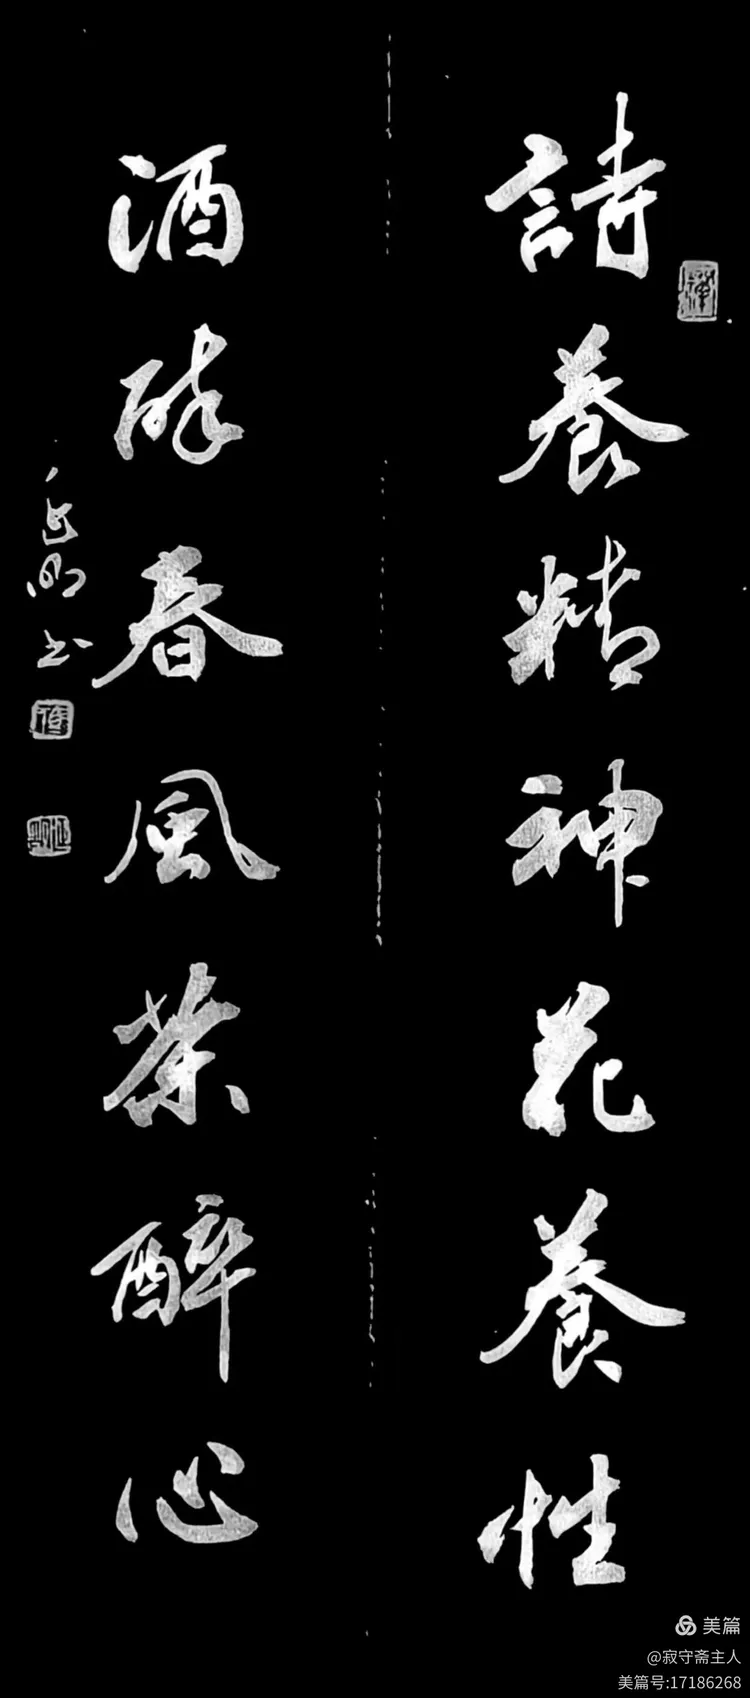 詩養精神花養性
酒醉春風茶醉心
延明书
美篇
@寂守斋主人
美篇号:17186268